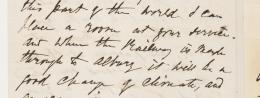 this part of the world I can
place a room at your service.
and when the Railway is made
through to Albury it will be a
good change of climate, and